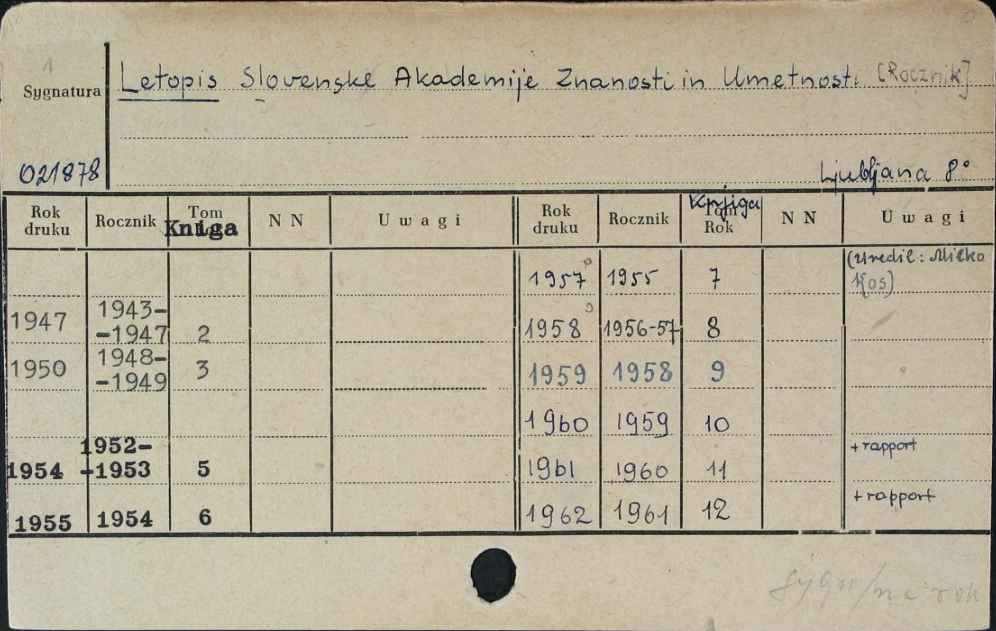 Sygnatura
Letopis Slovenske Akademije Znanosti in Umetnosti [Rocznik]
021878
Ljubljana 8°
Rok druku Rocznik Tom Kniga NN Uwagi Rok druku Rocznik Knjiga Tom Rok NN Uwagi
1957 1955 7 (Uredil: Milko Kos)
1947 1943--1947 2 1958 1956-57 8
1950 1948--1949 3 1959 1958 9
1960 1959 10
1954 1952--1953 5 1961 1960 11 + rapport
1955 1954 6 1962 1961 12 + rapport